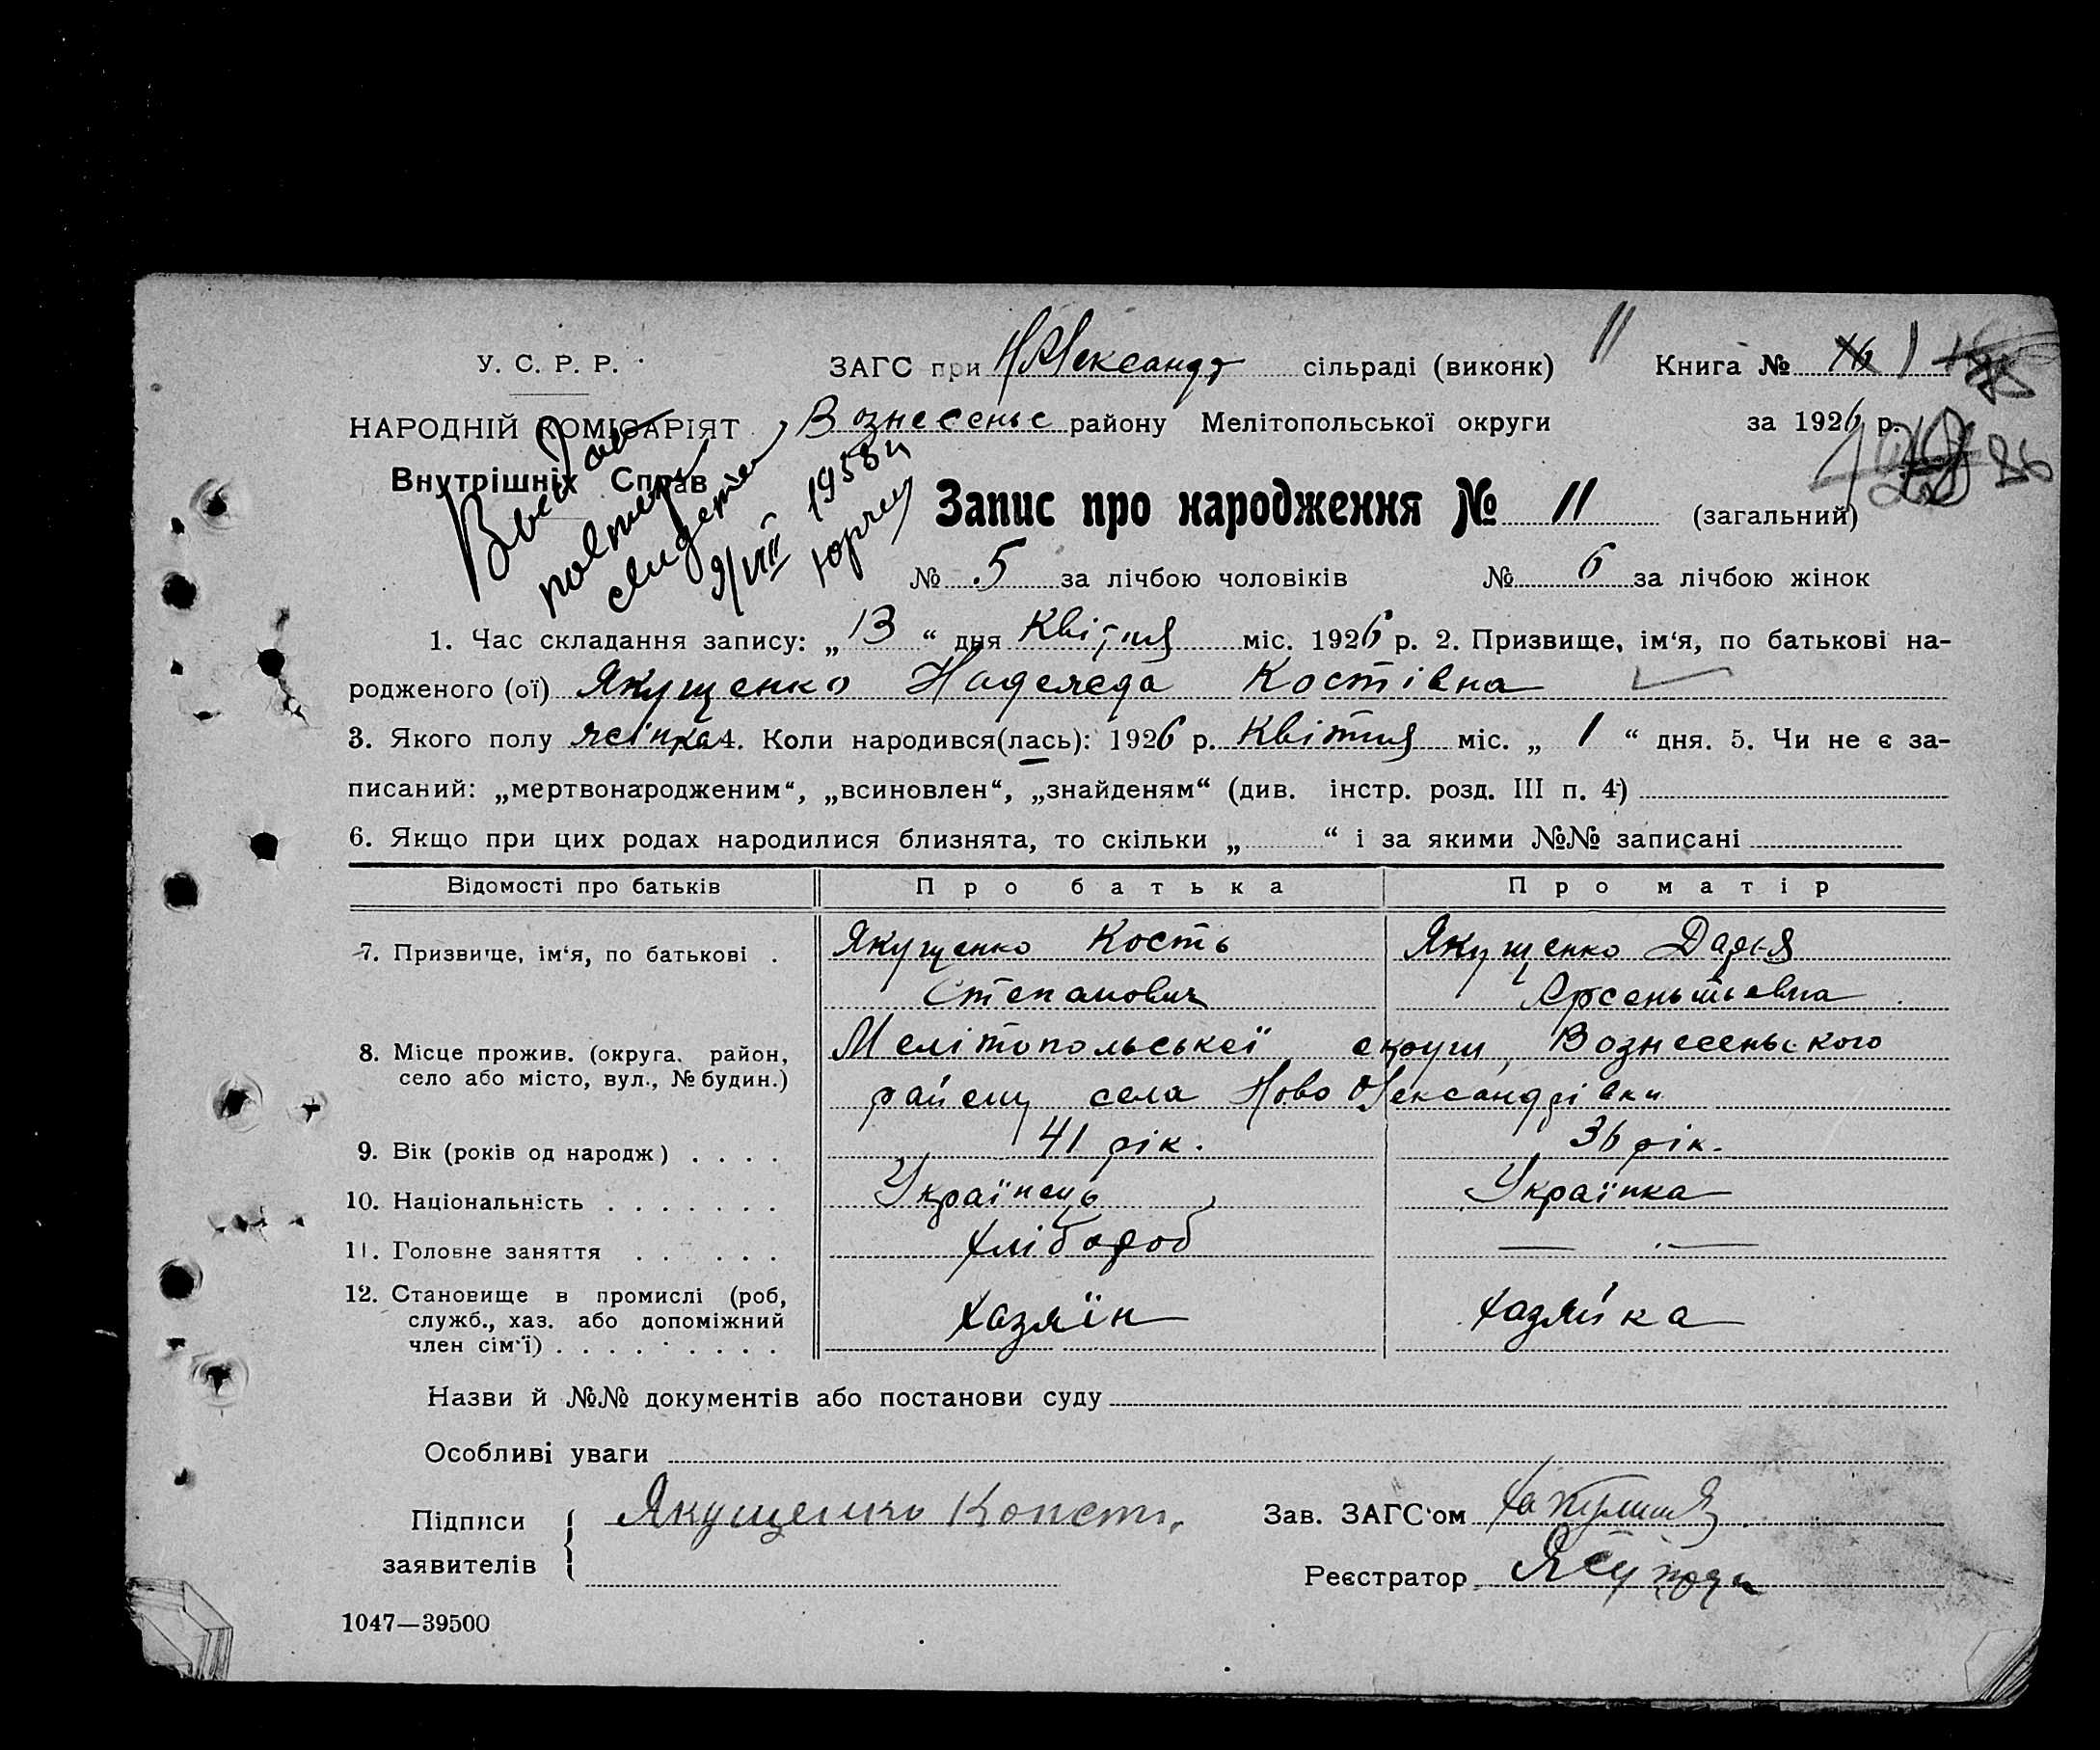 У. С. Р. Р. ЗАГС при Н Олександр сільраді (виконк) 11 Книга № 1
НАРОДНІЙ КОМІСАРІЯТ Вознесеньс району Мелітопольської округи за 1926 р.
Внутрішніх Справ
повтор
9/VIII 1958
Запис про народження № 11 (загальний)
№ 5 за лічбою чоловіків № 6 за лічбою жінок
1. Час складання запису: „13“ дня Квітня міс. 1926 р. 2. Призвище, ім‘я, по батькові на-
родженого (ої) Якущенко Надежда Костівна
3. Якого полу жінка 4. Коли народився(лась): 1926 р. Квітня міс. „ 1 “ дня. 5. Чи не є за-
писаний: „мертвонародженим“, „всиновлен“, „знайденям“ (див. інстр. розд. III п. 4)
6. Якщо при цих родах народилися близнята, то скільки „ “ і за якими №№ записані
Відомості про батьків Про батька Про матір
7. Призвище, ім‘я, по батькові . Якущенко Кость Якущенко Дарья
Степанович Арсентьевна
8. Місце прожив. (округа, район, Мелітопольської округи, Вознесеньского
село або місто, вул., № будин.) району села Ново Олександрівки
9. Вік (років од народж) . . . . 41 рік. 36 рік.
10. Національність . . . . . . . Українець Українка
11. Головне заняття . . . . . . Хлібороб — —
12. Становище в промислі (роб,
служб., хаз. або допоміжний Хазяїн Хазяйка
член сім‘ї) . . . . . . . . .
Назви й №№ документів або постанови суду
Особливі уваги
Підписи Якущенко Конст. Зав. ЗАГС‘ом
заявителів Реєстратор
1047—39500